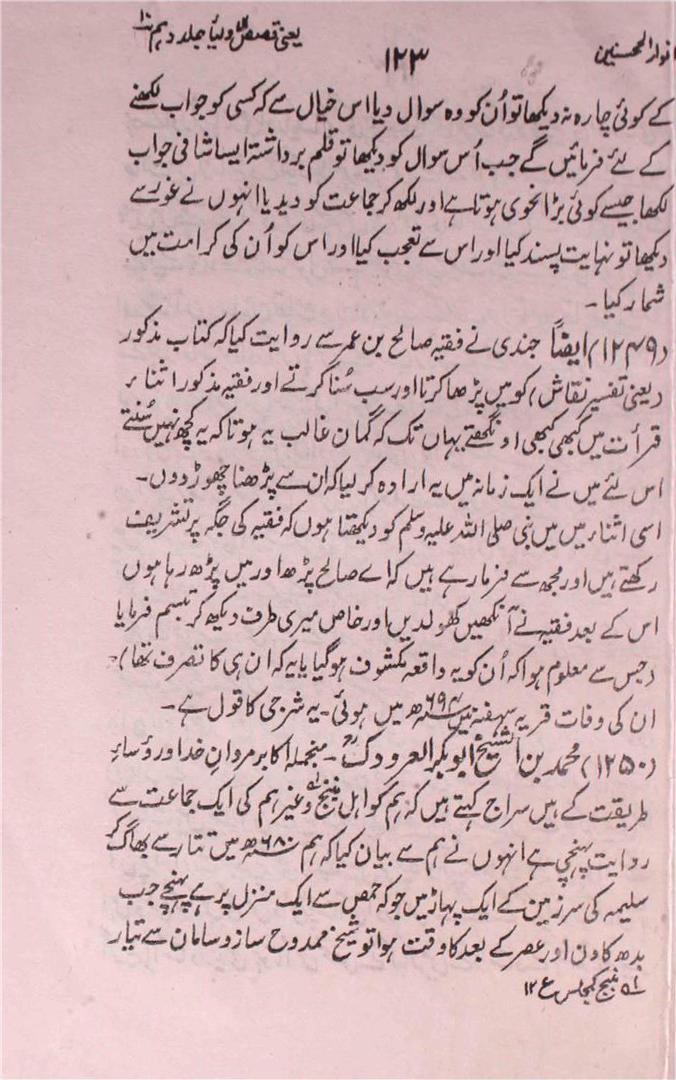 انوار المحسنین
۱۲۳
یعنی قصص الاولیاء جلد دہم ۱۰
کے کوئی چارہ نہ دیکھا تو اُن کو وہ سوال دیا اس خیال سے کہ کسی کو جواب لکھنے
کے لئے فرمائیں گے جب اُس سوال کو دیکھا تو قلم برداشتہ ایسا شافی جواب
لکھا جیسے کوئی بڑا نحوی ہوتا ہے اور لکھ کر جماعت کو دیدیا انہوں نے غور سے
دیکھا تو نہایت پسند کیا اور اس سے تعجب کیا اور اس کو اُن کی کرامت میں
شمار کیا۔
(۱۲۴۹) ایضاً جندی نے فقیہ صالح بن عمر سے روایت کیا کہ کتاب مذکور
(یعنی تفسیر نقاش) کو میں پڑھا کرتا اور سب سُنا کرتے اور فقیہ مذکور اثناء
قرأت میں کبھی کبھی اونگھتے یہاں تک کہ گمان غالب یہ ہوتا کہ یہ کچھ نہیں سُنتے
اس لئے میں نے ایک زمانہ میں یہ ارادہ کر لیا کہ ان سے پڑھنا چھوڑ دوں۔
اسی اثناء میں میں نبی صلی اللہ علیہ وسلم کو دیکھتا ہوں کہ فقیہ کی جگہ پر تشریف
رکھتے ہیں اور مجھ سے فرما رہے ہیں کہ اے صالح پڑھ اور میں پڑھ رہا ہوں
اس کے بعد فقیہ نے آنکھیں کھولدیں اور خاص میری طرف دیکھ کر تبسم فرمایا
(جس سے معلوم ہوا کہ اُن کو یہ واقعہ مکشوف ہو گیا یا یہ کہ ان ہی کا تصرف تھا)
ان کی وفات قریہ سہفنہ میں ۶۹۴ھ میں ہوئی۔ یہ شرجی کا قول ہے۔
(۱۲۵۰) محمد بن الشیخ ابو بکر العرودک ؒ۔ منجملہ اکابر مردانِ خدا و رؤساءِ
طریقت کے ہیں سراج کہتے ہیں کہ ہم کو اہل منبج ۱؎ وغیرہم کی ایک جماعت سے
روایت پہنچی ہے انہوں نے ہم سے بیان کیا کہ ہم ۶۸۰ھ میں تتار سے بھاگ کر
سلیمہ کی سرزمین کے ایک پہاڑ میں جو کہ حمص سے ایک منزل پر ہے پہنچے جب
بدھ کا دن اور عصر کے بعد کا وقت ہوا تو شیخ ممدوح ساز و سامان سے تیار
۱؎ منبج کمجلس ع ۱۲